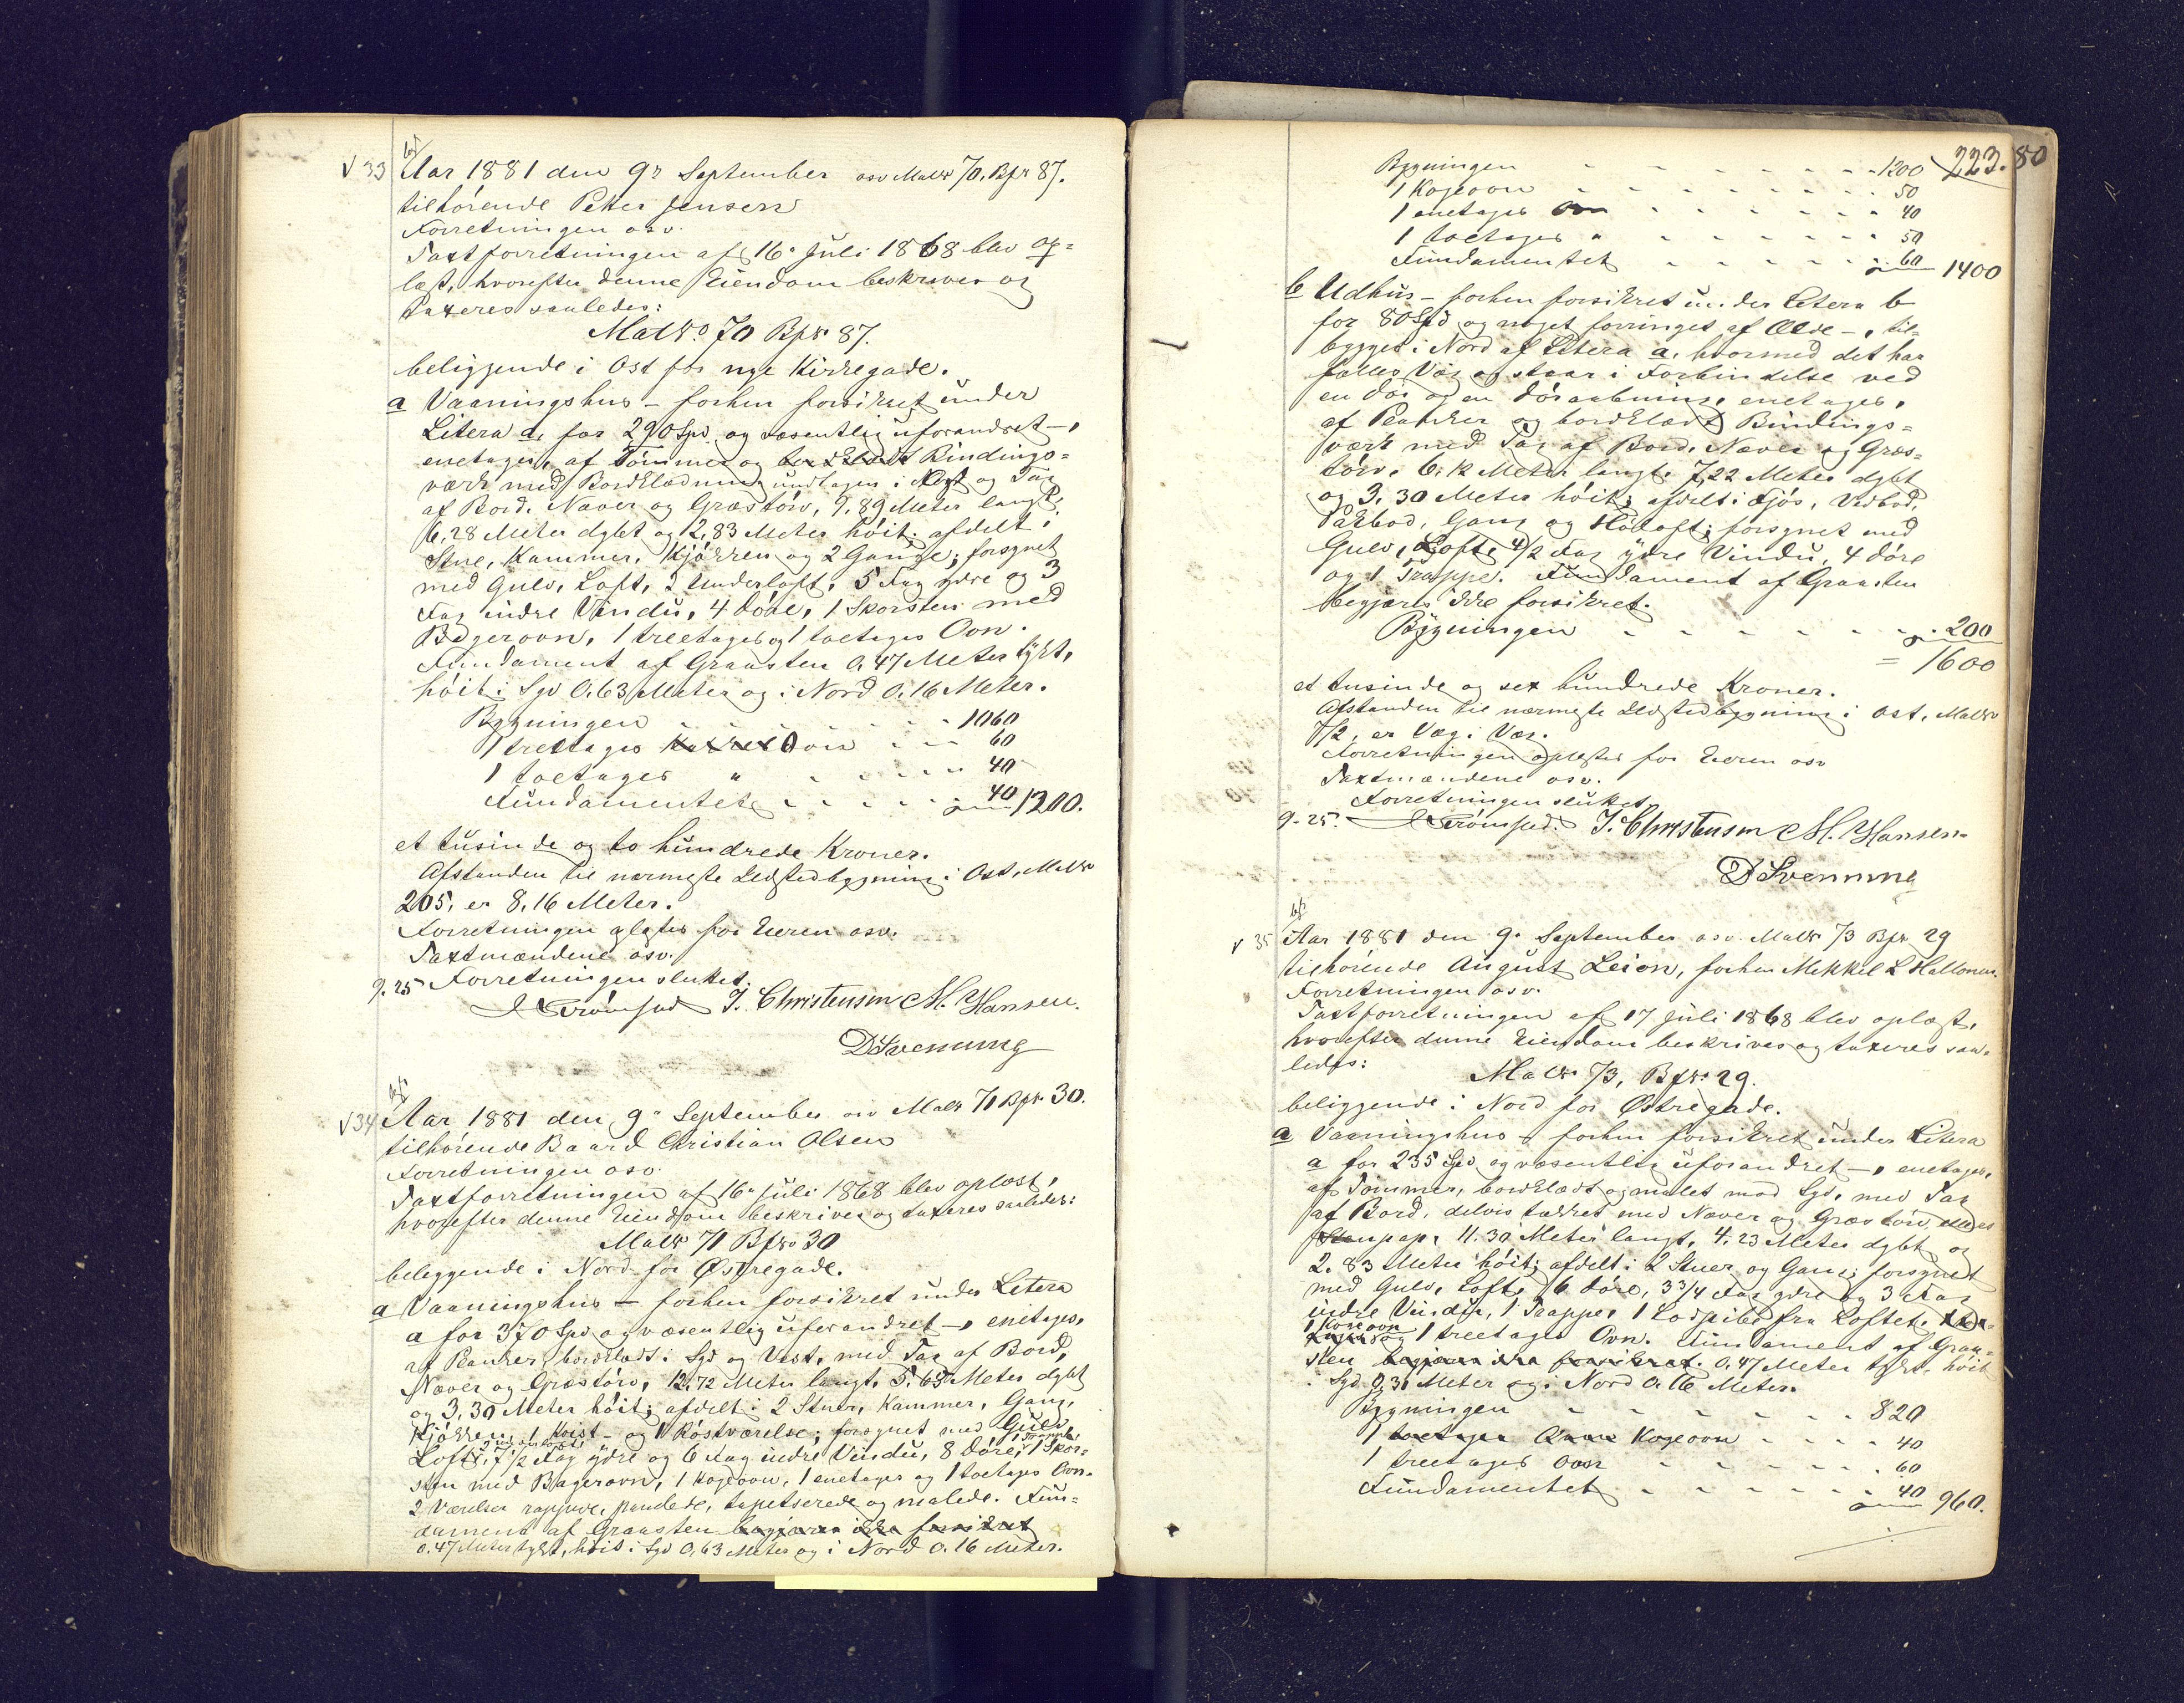 bf
√ 33 Aar 1881 den 9de September osv Mat№ 70, Bfr 87.
tilhørende Peter Jensen
Forretningen osv.
Taxtforretningen af 16de Juli 1868 blev op-
læst, hvorefter denne Eiendom beskrives og
taxeres saaledes:
Mat№ 70 Bfr 87.
beliggende i Ost for nye Kirkegade.
a Vaaningshus – forhen forsikret under
Litera a, for 290 Spd og væsentlig uforandret –,
enetages, af Tømmer og bordklædt Bindings-
værk med Bordklædning undtagen i Ost og Tag
af Bord, Næver og Græstørv, 9,89 Meter langt,
6,28 Meter dybt og 2,83 Meter høit; afdelt i
Stue, Kammer, Kjøkken og 2 Gange; forsynet
med Gulv, Loft, 2 Underloft, 5 Fag ydre og 3
Fag indre Vindu, 4 Døre, 1 Skorsten med
Bagerovn, 1 treetages og 1 toetages Ovn.
Fundament af Graasten 0,47 Meter tykt,
høit i Syd 0,63 Meter og i Nord 0,16 Meter.
Bygningen - - - - - - 1060
1 treetages Ovn - - - 60
1 toetages " - - - - - 40
Fundamentet - - - - - 40 1200.
et tusinde og to hundrede Kroner.
Afstanden til nærmeste Ildstedbygning i Ost, Mat№
205, er 8,16 Meter.
Forretningen oplæstes for Eieren osv.
Taxtmændene osv.
9.25 Forretningen sluttet.
Strømsted J. Christensen M. Hansen.
D Svenning
bf
√ 34 Aar 1881 den 9de September osv Mat№ 71 Bfr 30.
tilhørende Baard Christian Olsen
Forretningen osv.
Taxtforretningen af 16de Juli 1868 blev oplæst,
hvorefter denne Eiendom beskrives og taxeres saaledes:
Mat№ 71 Bfr 30
beliggende i Nord for Østregade.
a Vaaningshus – forhen forsikret under Litera
a for 370 Spd og væsentlig uforandret –, enetages,
af Planker, bordklædt i Syd og Vest, med Tag af Bord,
Næver og Græstørv, 12,72 Meter langt, 5,65 Meter dybt
og 3,30 Meter høit; afdelt i 2 Stuer, Kammer, Gang,
Kjøkken, 1 Kvist- og 1 Røstværelse; forsynet med Gulv,
Loft, 7 1/2 Fag ydre og 6 Fag indre Vindu, 8 Døre, 1 Trappe, 1 Skor-
sten med Bagerovn, 1 Kogeovn, 1 enetages og 1 toetages Ovn.
2 Værelser rappede, panelede, tapetserede og malede. Fun-
dament af Graasten begjæres ikke forsikret
0.47 Meter tykt, høit i Syd 0,63 Meter og i Nord 0.16 Meter.
223. 80
Bygningen - - - - - - - 1200
1 Kogeovn - - - - - - - 50
1 enetages Ovn - - - - - - 40
1 toetages " - - - - - - 50
Fundamentet - - - - - - 60 1400
b Udhus – forhen forsikret under Litera b
for 80 Spd og noget forringet af Ælde –, til-
bygget i Nord af Litera a, hvormed det har
fælles Væg og staar i Forbindelse ved
en Dør og en Døraabning, enetages,
af Planker og bordklædt Bindings-
værk med Tag af Bord, Næver og Græs-
tørv, 6.12 Meter langt, 7,22 Meter dybt
og 3,30 Meter høit; afdelt i Fjøs, Vedbod,
Pakbod, Gang og Høloft; forsynet med
Gulv, Loft, 4 1/2 Fag ydre Vindu, 4 Døre
og 1 Trappe. Fundament af Graasten
begjæres ikke forsikret.
Bygningen - - - - - - - 200
= 1600
et tusinde og sex hundrede Kroner.
Afstanden til nærmeste Ildstedbygning i Ost, Mat№
72, er Væg i Væg.
Forretningen oplæstes for Eieren osv
Taxtmændene osv.
Forretningen sluttet.
9-25. Strømsted. J. Christensen M. Hansen
D Svenning
bf
√ 35 Aar 1881 den 9de September osv. Mat№ 73 Bfr 29
tilhørende August Leion, forhen Mekkel L Hallonen.
Forretningen osv.
Taxtforretningen af 17 Juli 1868 blev oplæst,
hvorefter denne Eiendom beskrives og taxeres saa-
ledes:
Mat№ 73, Bfr 29.
beliggende i Nord for Østregade.
a Vaaningshus – forhen forsikret under Litera
a for 235 Spd og væsentlig uforandret –, enetages,
af Tømmer, bordklædt og malet mod Syd, med Tag
af Bord, delvis tækket med Næver og Græstørv
, 11.30 Meter langt, 4.23 Meter dybt og
2.83 Meter høit; afdelt i 2 Stuer og Gang; forsynet
med Gulv, Loft, 6 Døre, 3 3/4 Fag ydre og 3 Fag
indre Vindu, 1 Trappe, 1 Lodpibe fra Loftet,
1 Kogeovn og 1 treetages Ovn. Fundament af Graa-
sten begjæres ikke forsikret. 0.47 Meter tykt, høit
i Syd 0,31 Meter og i Nord 0.16 Meter.
Bygningen - - - - - - - 820
1 toetages Kogeovn - - - - 40
1 treetages Ovn - - - - - - 60
Fundamentet - - - - - - 40 960.